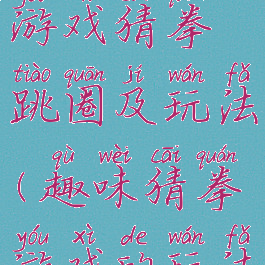 游戏猜拳
tiào quān jí wán fǎ
跳圈及玩法
qù wèi cāi quán
(趣味猜拳
yóu xì de wán fǎ